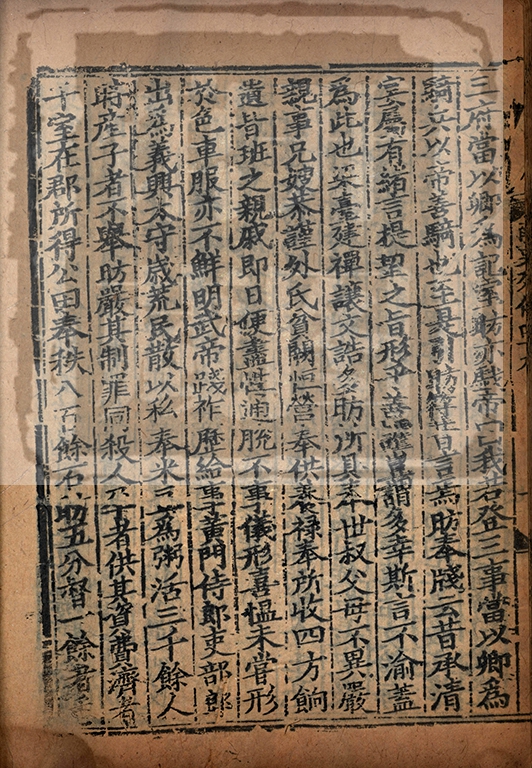 三府當以卿為記室昉亦戲帝曰我若登三事當以卿為
騎兵以帝善騎也至是引昉符昔言焉昉奉牋云昔承清
宴屬有緒言提挈之旨形乎善謔豈謂多幸斯言不渝蓋
為此也梁臺建禪讓文誥多昉所具奉世叔父母不異嚴
親事兄嫂恭謹外氏貧闕恒營奉供養祿奉所收四方餉
遺皆班之親戚即日便盡性通脫不事儀形喜慍未嘗形
於色車服亦不鮮明武帝踐祚歷給事黃門侍郎吏部郎
出為義興太守歳荒民散以私奉米豆為粥活三千餘人
時産子者不舉昉嚴其制罪同殺人孕者供其資費濟者
千室在郡所得公田奉秩八百餘石昉五分督一餘者